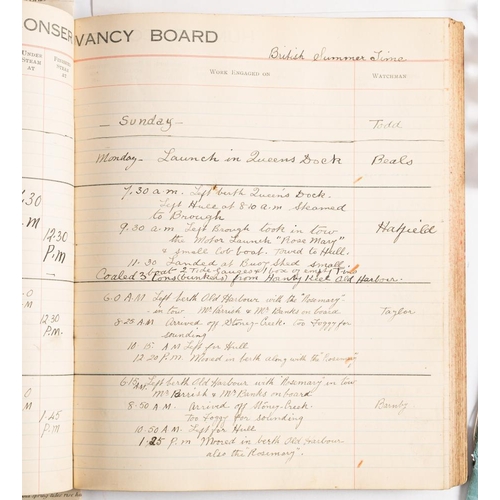 ONSER
VANCY BOARD
British Summer Time
UNDER STEAM AT
FINISHED STEAM AT
WORK ENGAGED ON
WATCHMAN
Sunday - Todd
Monday - Launch in Queens Dock Beals
7.30 a.m. Left berth Queen's Dock.
Left Hull at 8.10 a.m. Steamed
to Brough
9.30 a.m. Left Brough took in tow Hatfield
the Motor Launch "Rose Mary"
& small cob boat. Towed to Hull.
11.30 Landed at Buoy Shed small
boat 2 Tide Gauges 1 box of empty Tins
Coaled 3 Tons (bunkers) from Old Harbour.
12.30 P.M
6.0 A.M Left berth Old Harbour with the "Rosemary"
in tow Mr Parrish & Mr Banks on board Taylor
8.25 A.M Arrived off Stoney Creek. Too Foggy for
sounding
10.15 A.M Left for Hull
12.20 P.M. Moored in berth along with the "Rosemary"
12.20 P.m.
6.15 A.M. Left berth Old Harbour with "Rosemary" in tow
Mr Parrish & Mr Banks on board
8.50 A.M. Arrived off Stoney Creek
Too Foggy for sounding
10.50 A.M. Left for Hull
1.25 P.m Moored in berth Old Harbour
also the Rosemary"
1.25 P.M